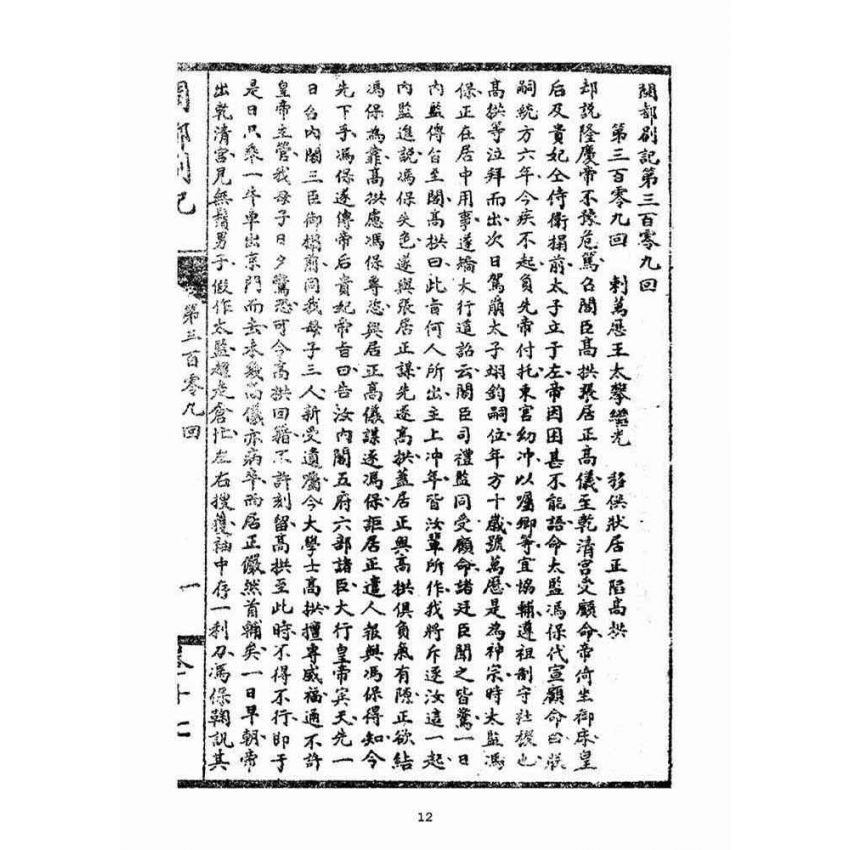 閩都别記第三百零九回
第三百零九回 刺萬厯王太攀繼光 移供狀居正陷高拱
却説隆慶帝不豫危篤召閣臣高拱張居正高儀至乾清宫受顧命帝倚坐御床皇
后及貴妃仝侍衛榻前太子立于左帝因困甚不能語命太監馮保代宣顧命曰朕
嗣統方六年今疾不起負先帝付托東宫幼冲以囑卿等宜協輔遵祖制守社稷也
高拱等泣拜而出次日駕崩太子翊鈞嗣位年方十歲號萬厯是為神宗時太監馮
保正在居中用事遂矯大行遺詔云閣臣司禮監同受顧命諸廷臣聞之皆驚一日
内監傳旨至閣高拱曰此旨何人所出主上冲年皆汝輩所作我將斥逐汝這一起
内監進説馮保失色遂與張居正謀先逐高拱蓋居正與高拱俱負氣有隙正欲結
馮保為靠高拱慮馮保專恣與居正高儀謀逐馮保詎居正遣人報與馮保得知今
先下手馮保遂傳帝后貴妃帝旨曰告汝内閣五府六部諸臣大行皇帝賓天先一
日召内閣三臣御榻前同我母子三人新受遺囑今大學士高拱擅專威福通不許
皇帝主管我母子日夕驚恐可令高拱回籍不許刻留高拱至此時不得不行即于
是日只乘一牛車出京門而去未幾高儀亦病卒而居正儼然首輔矣一日早朝帝
出乾清宫見無鬚男子假作太監趨走倉忙左右搜獲袖中存一利刀馮保鞫訊其
閩都别記
第三百零九回
一